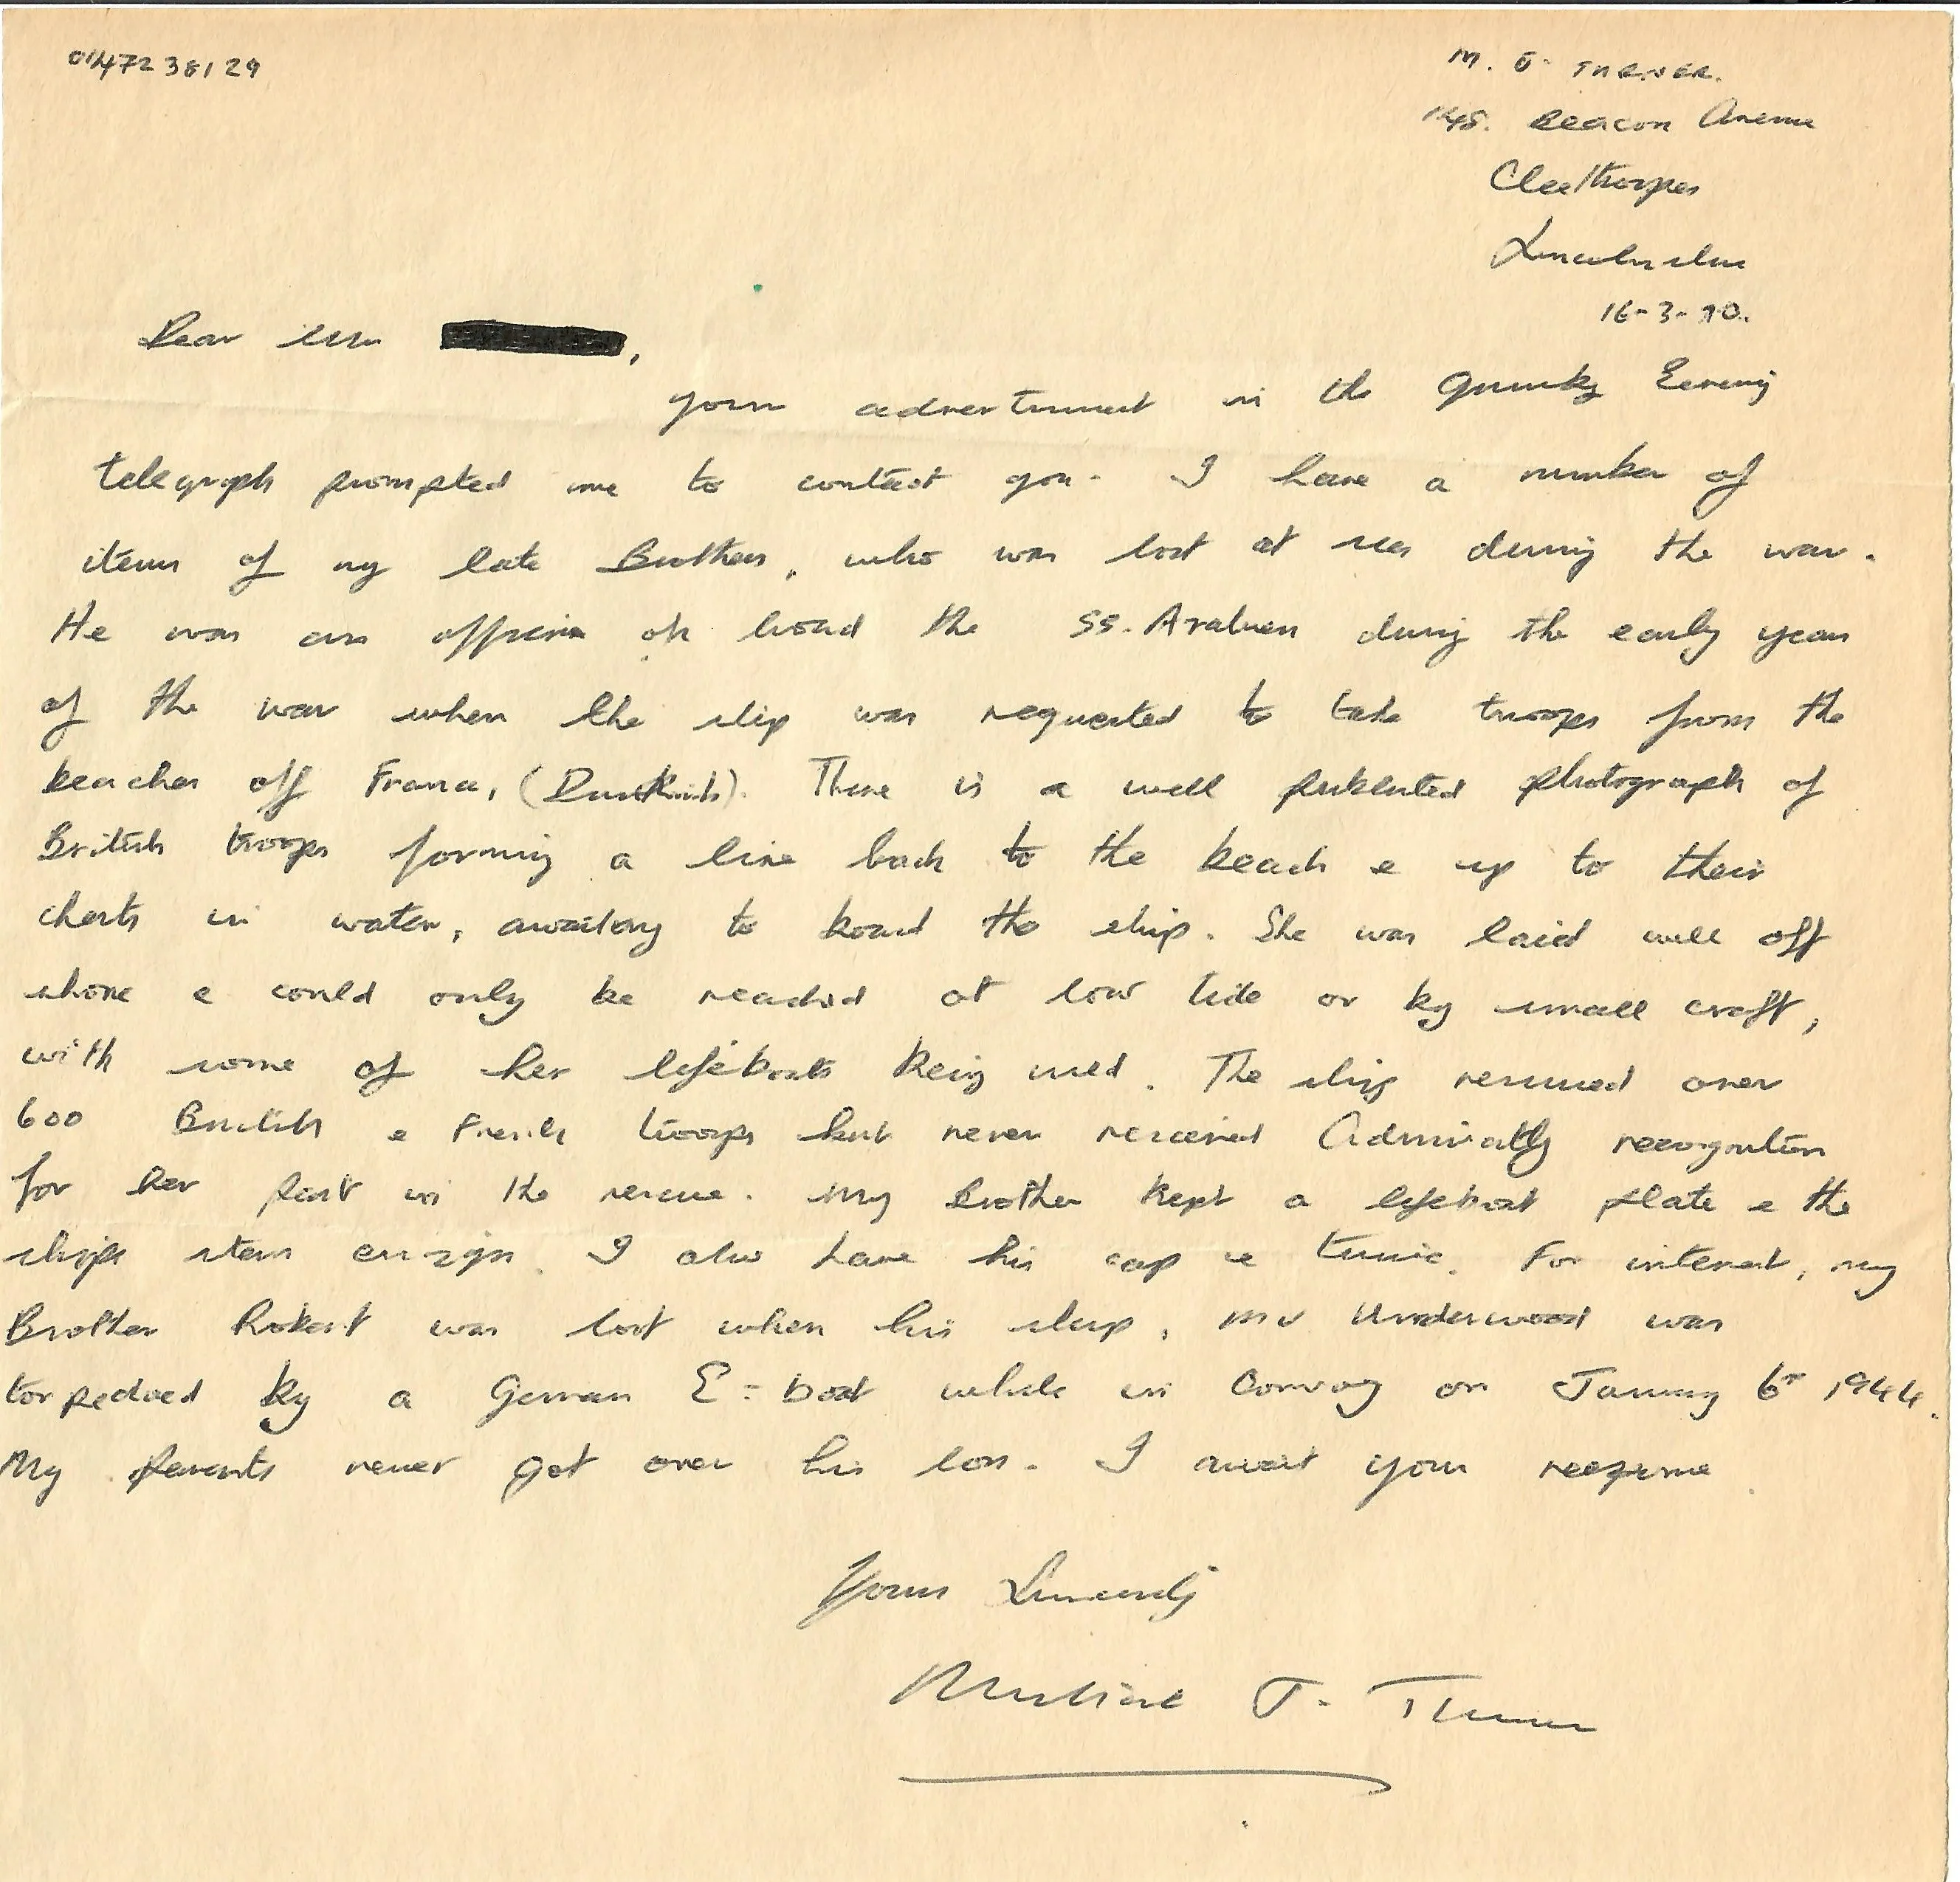 0147238129
M. J. TURNER.
148. Beacon Avenue
Cleethorpes
Lincolnshire
16-3-90.
Dear ,
your advertisment in the Grimsby Evening
telegraph prompted me to contact you. I have a number of
items of my late Brothers, who was lost at sea during the war.
He was an officer on board the SS. during the early years
of the war when the ship was requested to take troops from the
beaches off France, (Dunkirk). There is a well published photograph of
British troops forming a line back to the beach e up to their
chests in water, awaiting to board the ship. She was laid well off
shore e could only be reached at low tide or by small craft,
with some of her lifeboats being used. The ship rescued over
600 British e French troops but never received Admiralty recognition
for her part in the rescue. My Brother kept a lifeboat plate e the
ships stern ensign. I also have his cap e tunic. For interest, my
Brother Robert was lost when his ship, MV Underwood was
torpedoed by a German E-boat while in Convoy on January 6th 1944.
My parents never got over his loss. I await your response.
Yours Sincerely
J. Turner